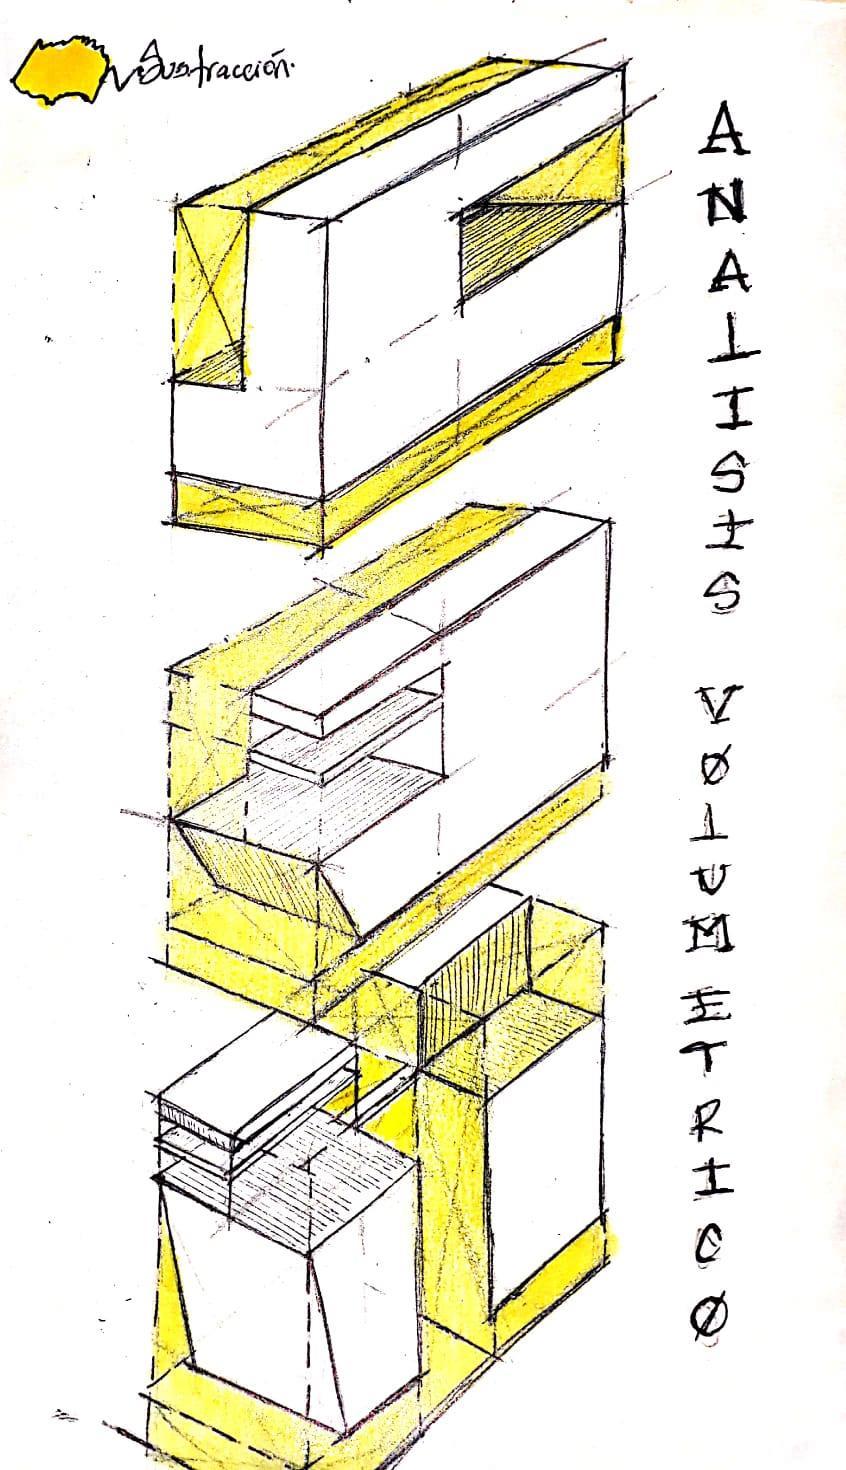 Sustracción.
ANALISIS VØLUMETRICØ